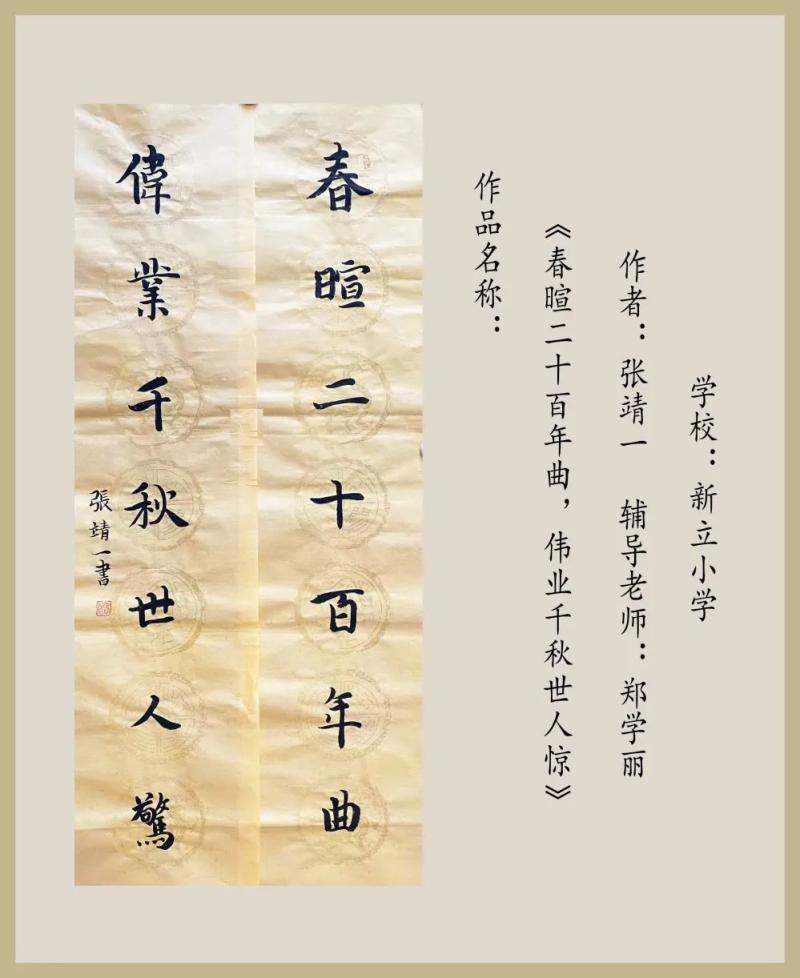 春暄二十百年曲
偉業千秋世人驚
張靖一書
作品名称：
《春暄二十百年曲，伟业千秋世人惊》
作者：张靖一 辅导老师：郑学丽
学校：新立小学